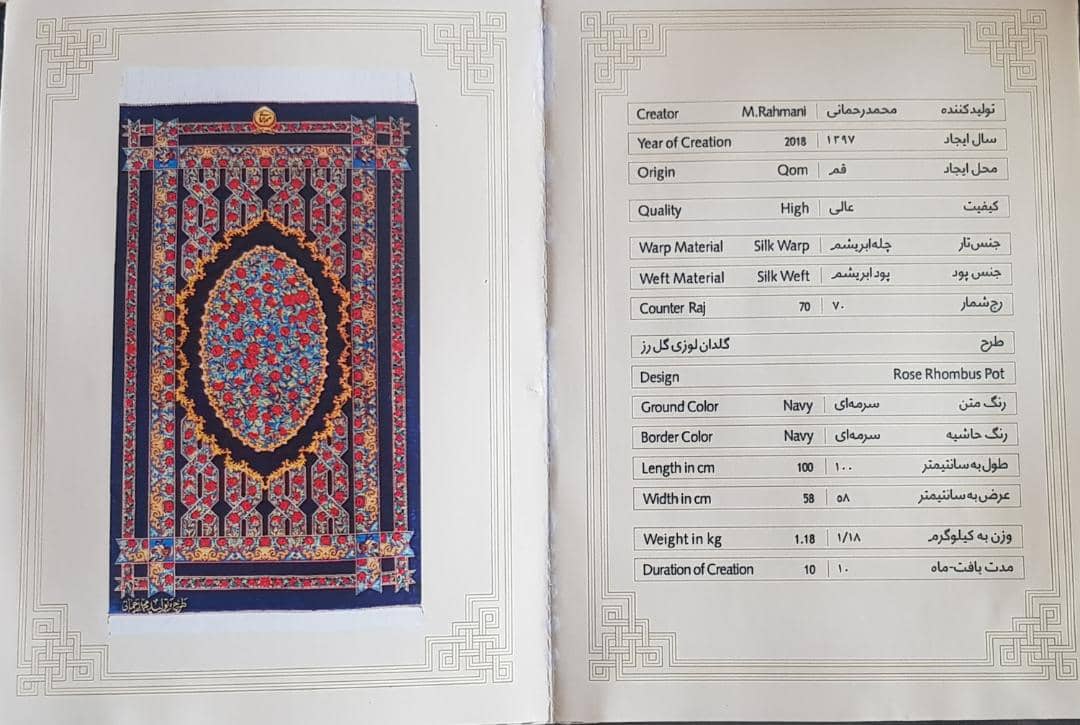 Creator M.Rahmani محمدرحمانی تولیدکننده
Year of Creation 2018 ۱۳۹۷ سال ایجاد
Origin Qom قم محل ایجاد
Quality High عالی کیفیت
Warp Material Silk Warp چله‌ابریشم جنس‌تار
Weft Material Silk Weft پودابریشم جنس پود
Counter Raj 70 ۷۰ رج‌شمار
گلدان لوزی گل رز طرح
Design Rose Rhombus Pot
Ground Color Navy سرمه‌ای رنگ متن
Border Color Navy سرمه‌ای رنگ حاشیه
Length in cm 100 ۱۰۰ طول به سانتیمتر
Width in cm 58 ۵۸ عرض به سانتیمتر
Weight in kg 1.18 ۱/۱۸ وزن به کیلوگرم
Duration of Creation 10 ۱۰ مدت بافت-ماه